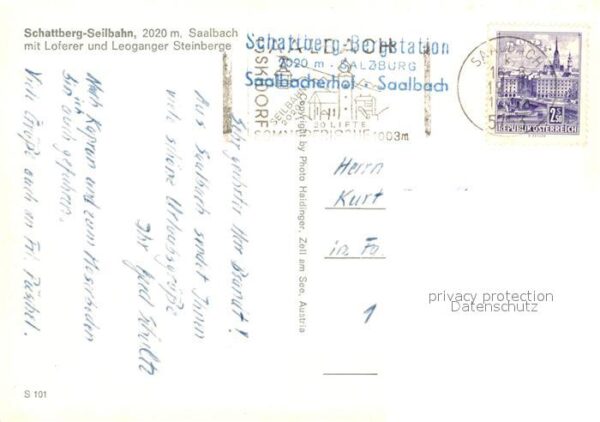 Schattberg-Seilbahn, 2020 m. Saalbach
mit Loferer und Leoganger Steinberge
SAALBACH
SKIDORF
SEILBAHN
20 LIFTE
SOMMERFRISCHE 1003m
Schattberg-Bergstation
2020 m - SALZBURG
Saalbacherhof - Saalbach
SAALBACH
2.50
REPUBLIK ÖSTERREICH
Sehr geehrter Herr Brandt!
Aus Saalbach sendet Ihnen
viele schöne Urlaubsgrüße
Ihr Gerd Schultz
Nach Kaprun und zum Moserboden
bin ich auch gefahren.
Viele Grüße auch an Frl.
Copyright by Photo Haidinger, Zell am See, Austria
Herrn
Kurt
in Fa.
1
privacy protection
Datenschutz
S 101